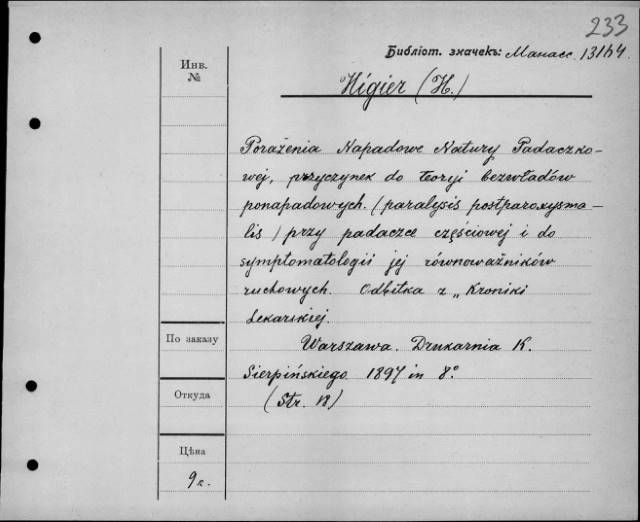 233
Библіот. значекъ: Манасс. 13164
Инв.
№
Higier (H.)
Porażenia Napadowe Natury Padaczko-
wej, przyczynek do teoryi bezwładów
ponapadowych. (paralysis postparoxysma-
lis) przy padaczce częściowej i do
symptomatologii jej równoważników
ruchowych. Odbitka z „Kroniki
Lekarskiej.
По заказу
Warszawa. Drukarnia K.
Sierpińskiego 1897 in 8°
Откуда
(Str. 18)
Цѣна
9к.